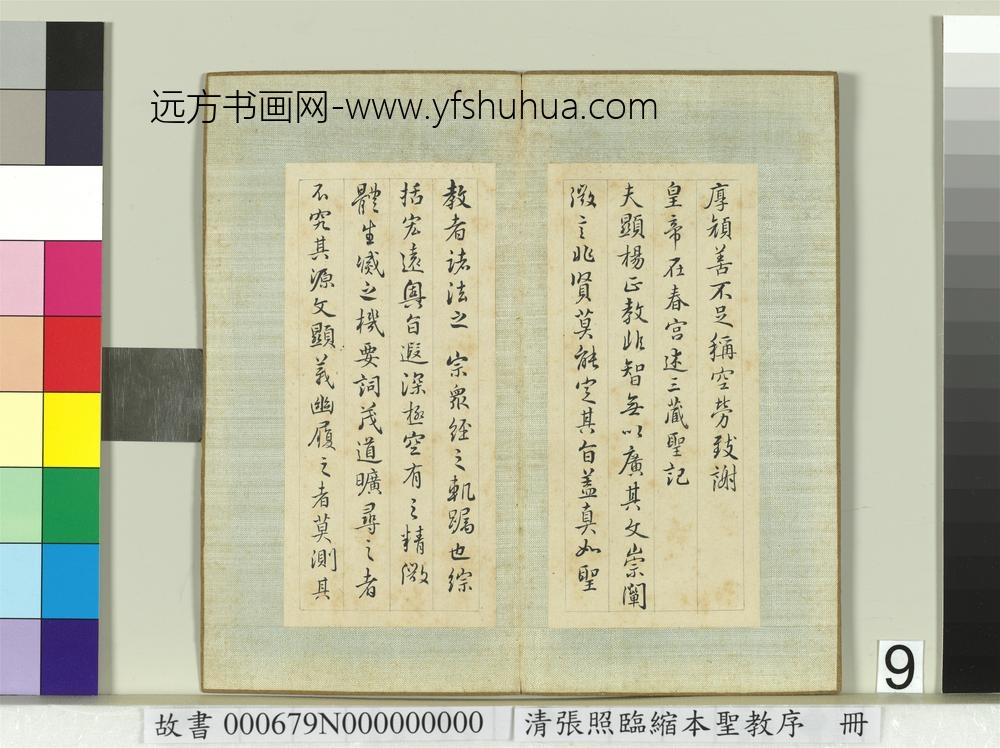 远方书画网-www.yfshuhua.com
厚顏善不足稱空勞致謝
皇帝在春宮述三藏聖記
夫顯楊正教非智無以廣其文崇闡
微言非賢莫能定其旨蓋真如聖
教者諸法之宗衆經之軌躅也綜
括宏遠奧旨遐深極空有之精微
體生滅之機要詞茂道曠尋之者
不究其源文顯義幽履之者莫測其
9
故書 000679N000000000 清張照臨縮本聖教序 冊